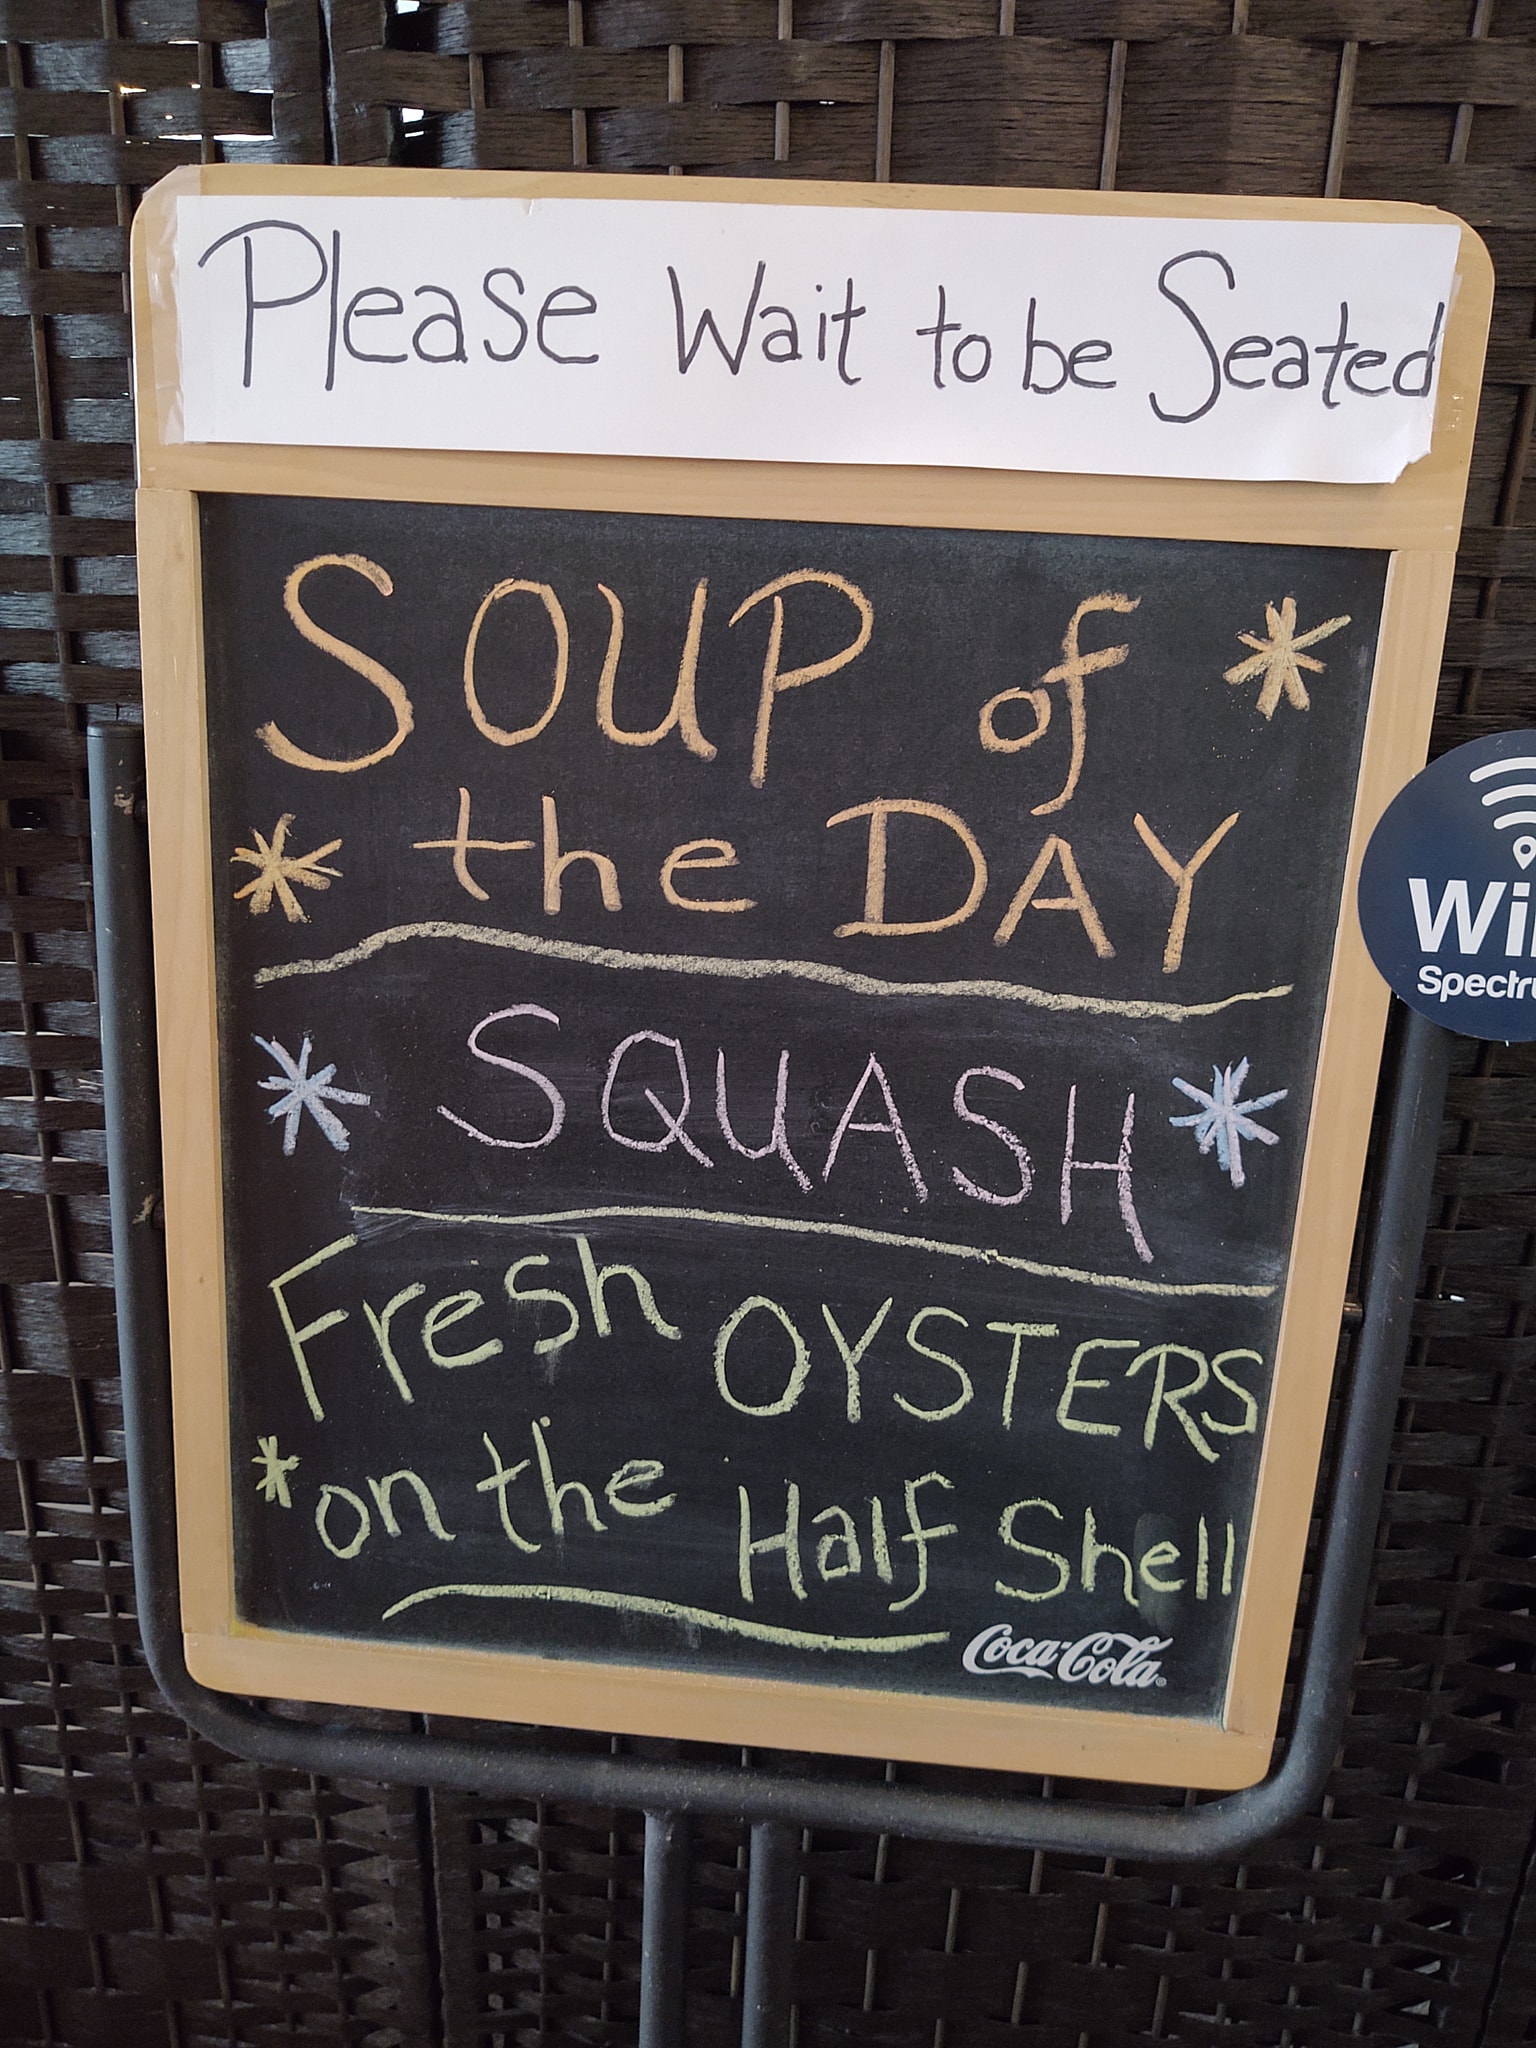 Please Wait to be Seated
SOUP of *
* the DAY
* SQUASH *
Fresh OYSTERS
* on the Half Shell
Coca-Cola